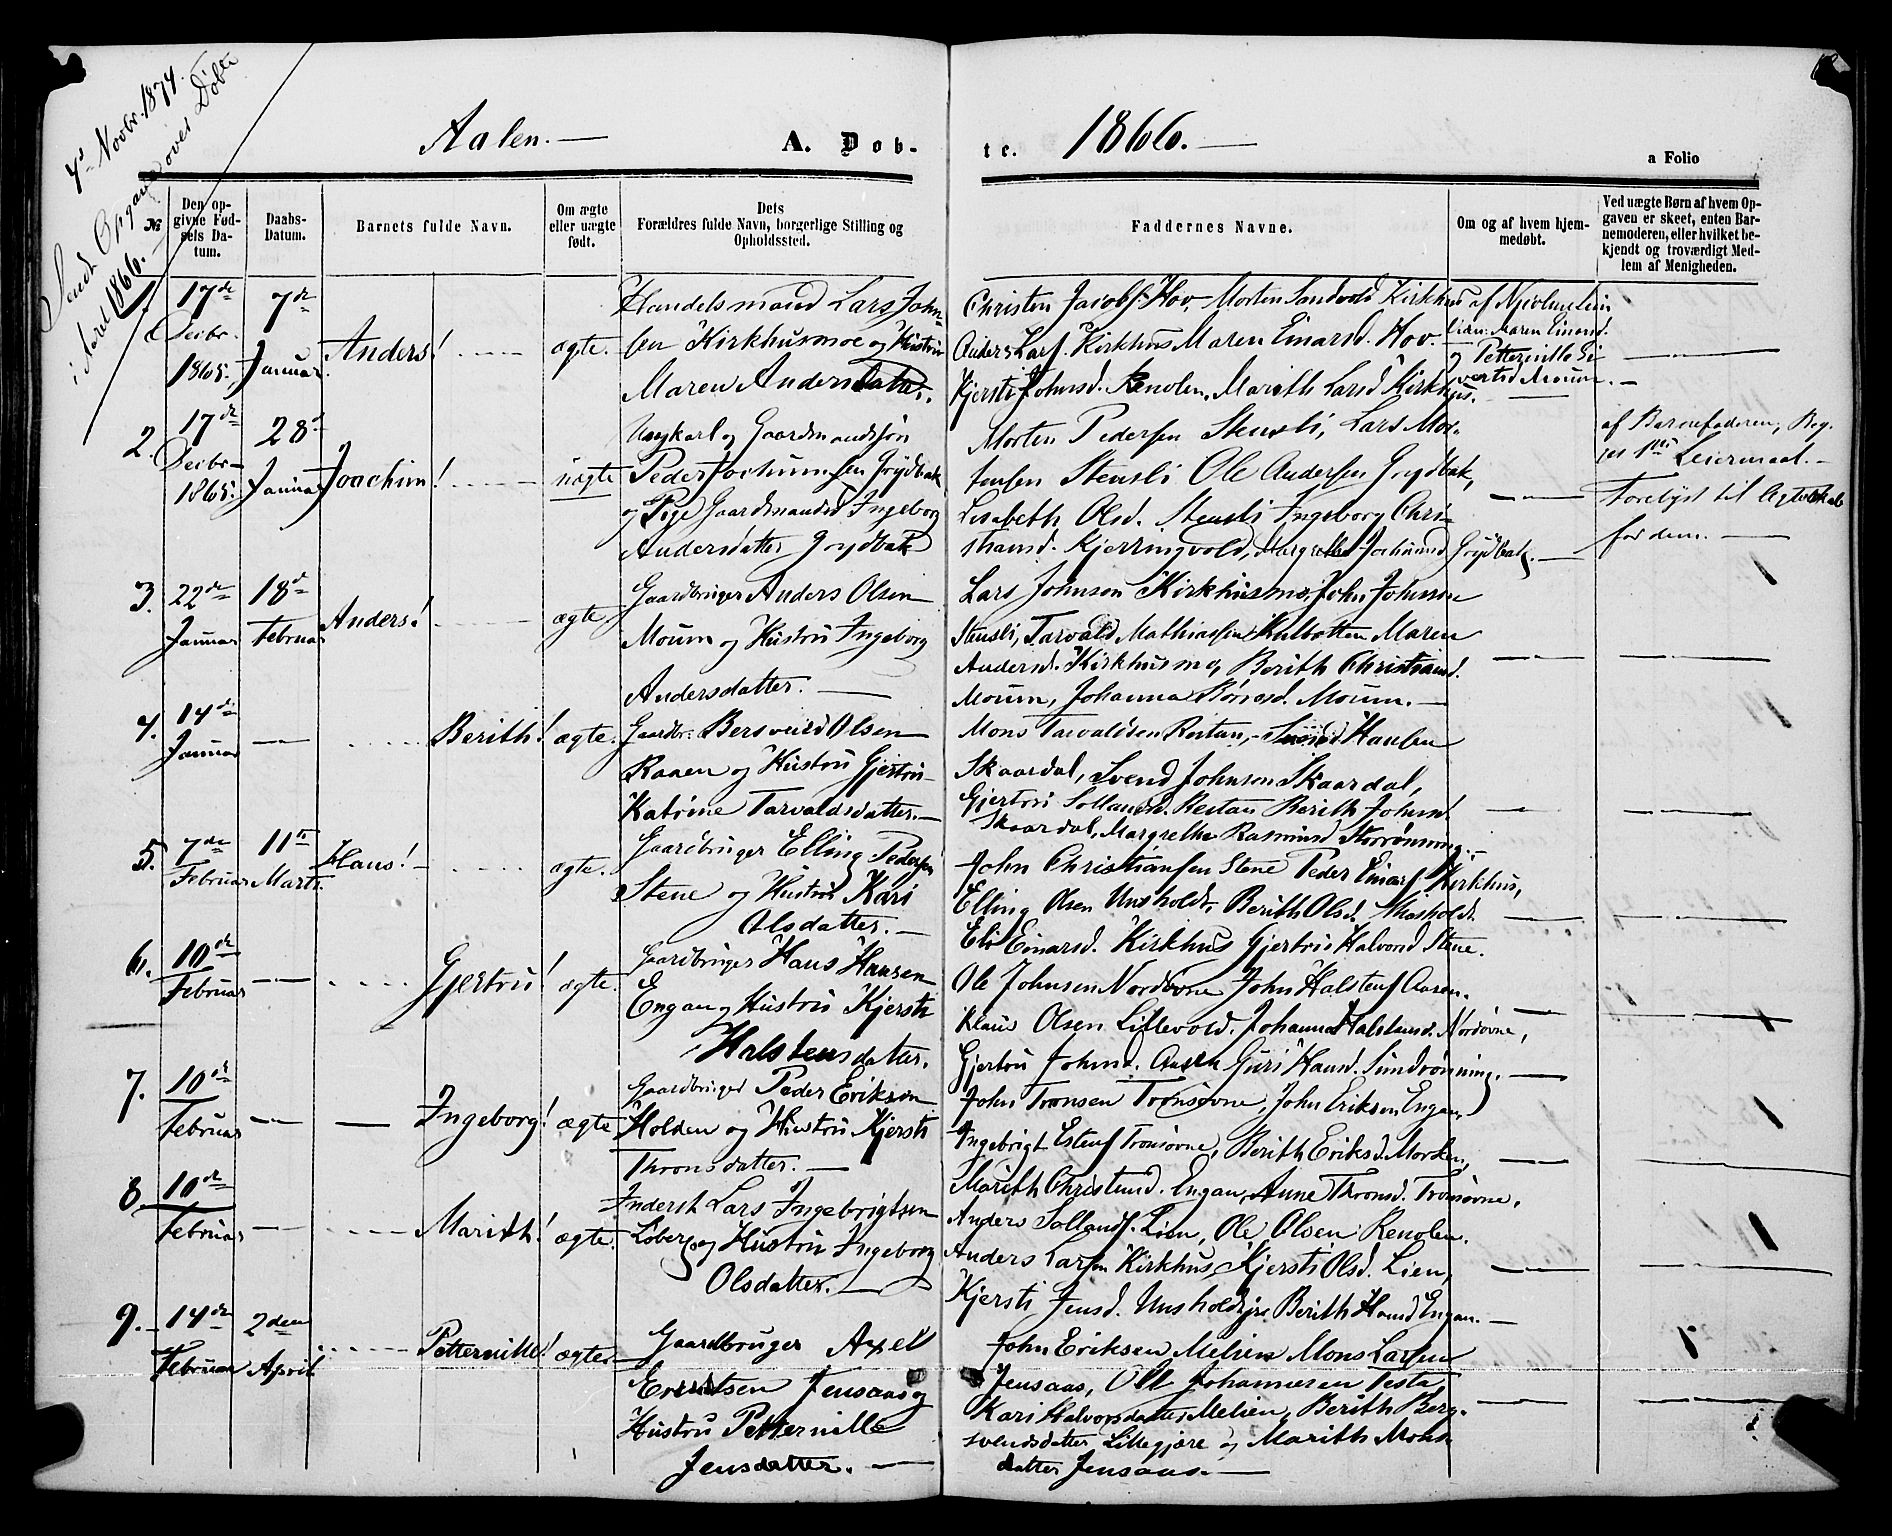 4de Novbr. 1874.
Sendt Opgave over Døbte
i Aaret 1866.
Aalen.
A. Døb-
te.
1866.
a Folio
№
Den op-
givne Fød-
sels Da-
tum.
Daabs-
Datum.
Barnets fulde Navn.
Om ægte
eller uægte
født.
Dets
Forældres fulde Navn, borgerlige Stilling og
Opholdssted.
Faddernes Navne.
Om og af hvem hjem-
medøbt.
Ved uægte Børn af hvem Op-
gaven er skeet, enten Bar-
nemoderen, eller hvilket be-
kjendt og troværdigt Med-
lem af Menigheden.
1.
17de
Decbr.
1865.
7de
Januar
Anders!
ægte.
Handelsmand Lars John-
sen Kirkhusmoe og Hustru
Maren Andersdatter.
Christen Jacobs. Hov, Morten Sandvold Kirkhus
Anders Lars. Kirkhus Maren Einarsd. Hov.
Kjersti Johnsd. Renolen, Marith Larsd Kirkhus.
Maren Einarsd.
og Petternille Si-
vertsd Moum.
2.
17de
Decbr
1865.
28d
Januar
Joachim!
uægte
Ungkarl og Gaardmandssøn
Peder Jochumsen Grydbak
og Pige Gaardmandsd Ingeborg
Andersdatter Grydbak
Morten Pedersen Stensli, Lars Mor-
tensen Stensli Ole Andersen Grydbak,
Lisabeth Olsd. Stensli Ingeborg Chri-
stiansd. Kjerringvold, Margrethe Jochumsd Grydbak.
af Barnefaderen, Beg-
ges 1ste Leiermaal.
Forelyst til Ægteskab
for dem.
3.
22de
Januar
18d
Februar
Anders!
ægte
Gaardbruger Anders Olsen
Moum og Hustru Ingeborg
Andersdatter.
Lars Johnsen Kirkhusmo, John Johnsen
Stensli, Tarvald Mathiassen Kulbotten Maren
Andersd. Kirkhusmo, Berith Christiansd.
Moum, Johanna Moum.
4.
14de
Januar
Berith!
ægte.
Gaardbr. Bersvend Olsen
Raaen og Hustru Gjertru
Katrine Tarvaldsdatter.
Mons Tarvaldsen Reitan, Hansen
Skaardal, Svend Johnsen Skaardal,
Gjertru Reitan Berith Johnsd
Skaardal, Margrethe Rasmusd Storrønning.
5.
7de
Februar
11te
Marts.
Hans!
ægte.
Gaardbruger Elling Pedersen
Stene og Hustru Kari
Olsdatter.
John Christiansen Stene Peder Einars. Kirkhus,
Elling Olsen Unsholdt, Berith Olsd.
Eli Einarsd. Kirkhus Gjertru Halvorsd Stene.
6.
10de
Februar
Gjertru!
ægte.
Gaardbruger Hans Hansen
Engan og Hustru Kjersti
Halstensdatter.
Ole Johnsen Nordøvne John Halstens. Aasen.
Klaus Olsen Lillevold, Johanna Halstensd. Nordøvne,
Gjertru Johnsd. Aasen Guri Hansd. Sundrønning.
7.
10de
Februar
Ingeborg!
ægte
Gaardbruger Peder Eriksen
Holden og Hustru Kjersti
Thronsdatter.
John Tronsen Tronsøvne, John Eriksen Engan,
Ingebrigt Estens. Tronsøvne, Berith Eriksd. Morken,
Marith Christensd. Engan, Anne Thronsd. Tronsøvne.
8
10de
Februar
Marith!
ægte.
Inderst Lars Ingebrigtsen
Løberg og Hustru Ingeborg
Olsdatter.
Anders Sollands. Lien, Ole Olsen Renolen.
Anders Larsen Kirkhus Kjersti Olsd. Lien,
Kjersti Jensd. Unsholdgjre Berith Hansd Engan.
9.
14de
Februar
2den
April
Petternille!
ægte
Gaardbruger Axel
Evensen Jensaas og
Hustru Petternille
Jensdatter.
John Eriksen Melien Mons Larsen
Jensaas, Ole Johannesen
Kari Halvorsdatter Melien, Berith Berg-
svendsdatter Littlegjære og Marith Mons
datter Jensaas.